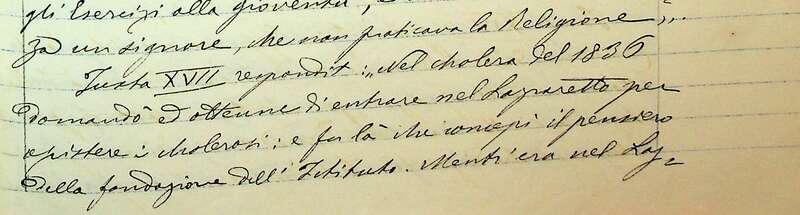 gli Esercizi alla gioventù,
za un signore, che non praticava la Religione,...
Juxta XVII respondit: „Nel cholera del 1836
domandò ed ottenne di entrare nel Lazzaretto per
assistere i cholerosi: e fu là che concepì il pensiero
della fondazione dell'Istituto. Mentr'era nel Laz=